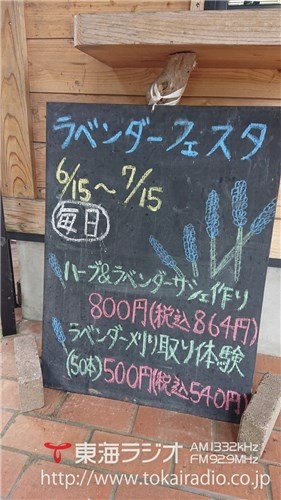 ラベンダーフェスタ
6/15～7/15
毎日
ハーブ&ラベンダーサシェ作り
800円(税込864円)
ラベンダー刈り取り体験
(50本)500円(税込540円)
東海ラジオ AM1332kHz
FM92.9MHz
http://www.tokairadio.co.jp